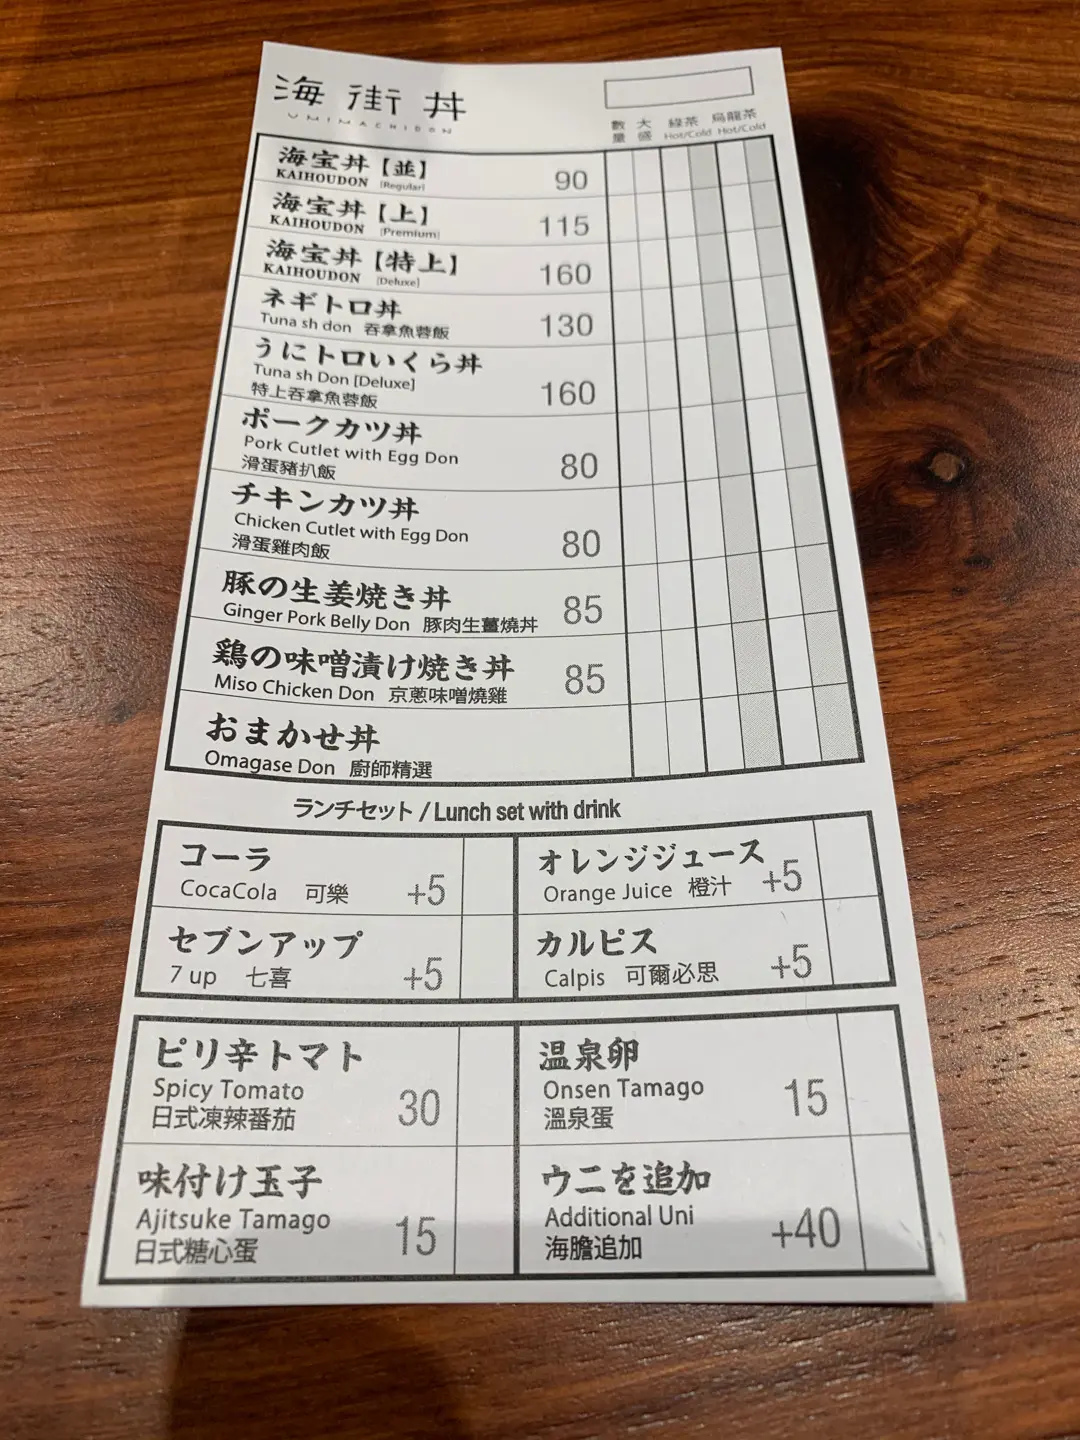 海街丼
UMIMACHIDON
數量 大盛 綠茶 烏龍茶
Hot/Cold Hot/Cold
海宝丼【並】
KAIHOUDON [Regular] 90
海宝丼【上】
KAIHOUDON [Premium] 115
海宝丼【特上】
KAIHOUDON [Deluxe] 160
ネギトロ丼
Tuna sh don 吞拿魚蓉飯 130
うにトロいくら丼
Tuna sh Don [Deluxe]
特上吞拿魚蓉飯 160
ポークカツ丼
Pork Cutlet with Egg Don
滑蛋豬扒飯 80
チキンカツ丼
Chicken Cutlet with Egg Don
滑蛋雞肉飯 80
豚の生姜焼き丼
Ginger Pork Belly Don 豚肉生薑燒丼 85
鶏の味噌漬け焼き丼
Miso Chicken Don 京葱味噌燒雞 85
おまかせ丼
Omagase Don 廚師精選
ランチセット / Lunch set with drink
コーラ
CocaCola 可樂 +5
オレンジジュース
Orange Juice 橙汁 +5
セブンアップ
7 up 七喜 +5
カルピス
Calpis 可爾必思 +5
ピリ辛トマト
Spicy Tomato
日式凍辣番茄 30
温泉卵
Onsen Tamago
溫泉蛋 15
味付け玉子
Ajitsuke Tamago
日式糖心蛋 15
ウニを追加
Additional Uni
海膽追加 +40